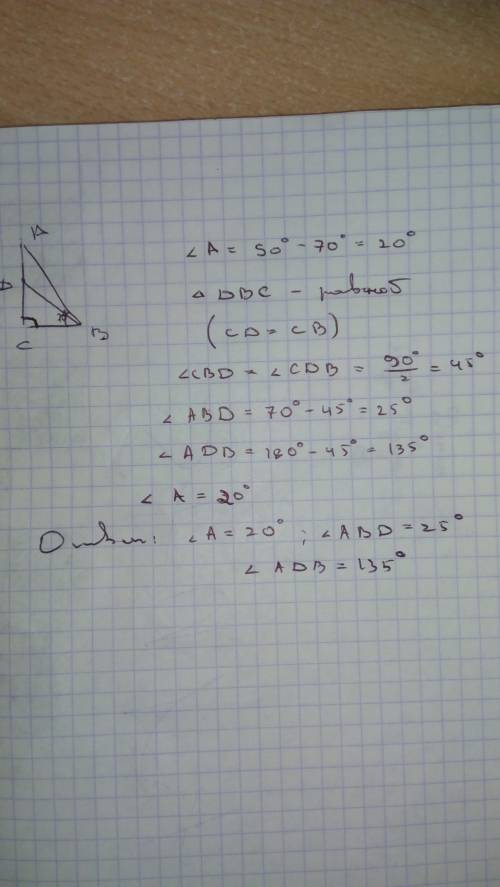 A
D
C
B
∠A = 90° - 70° = 20°
△ DBC - равноб
(CD = CB)
∠CBD = ∠CDB = 90°/2 = 45°
∠ABD = 70° - 45° = 25°
∠ADB = 180° - 45° = 135°
∠A = 20°
Ответ: ∠A = 20° ; ∠ABD = 25°
∠ADB = 135°